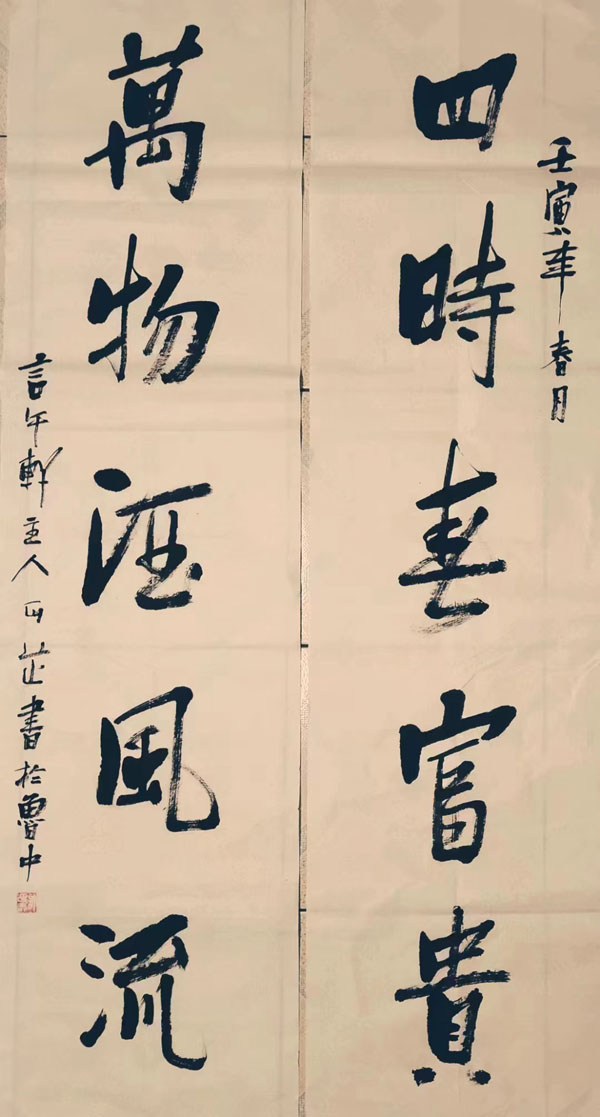 壬寅年春月
四時春富貴
萬物酒風流
言午軒主人芷書於魯中